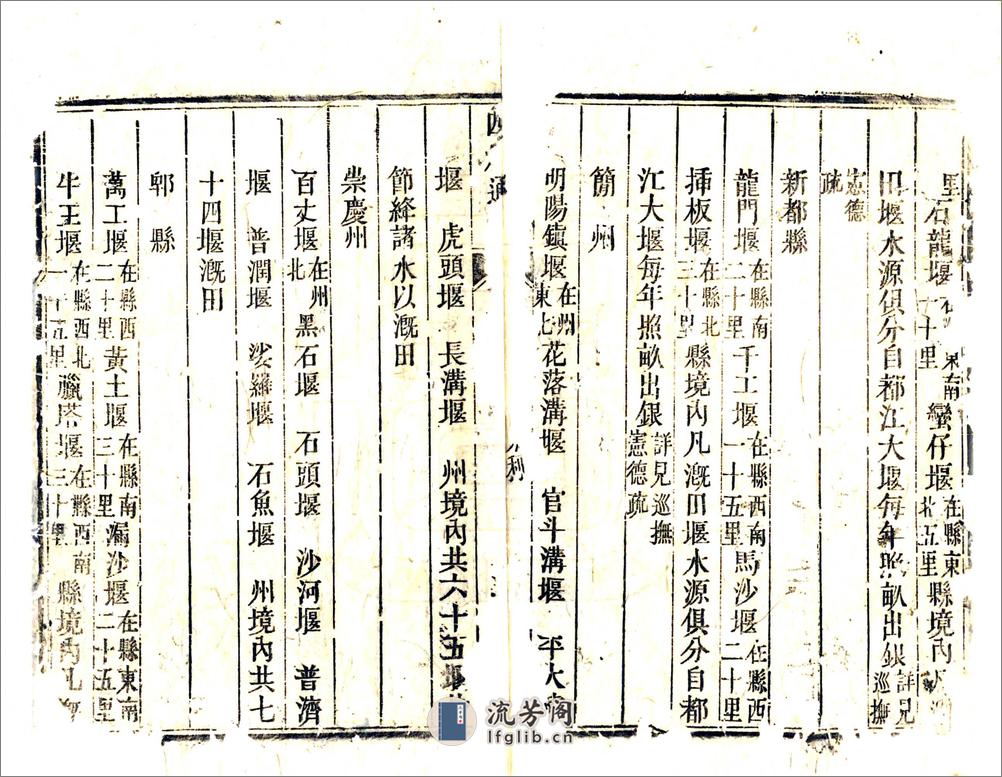 里石龍堰在東南十里蠻仔堰在縣東北五里縣境內凡
田堰水源俱分自都江大堰每年照畝出銀詳兄巡撫
憲德疏
新都縣
龍門堰在縣南二十里千工堰在縣西南一十五里馬沙堰在縣西二十里
插板堰在縣北三十里縣境內凡溉田堰水源俱分自都
江大堰每年照畝出銀詳兄巡撫憲德疏
簡州
明陽鎮堰在州東七花落溝堰 官斗溝堰 平大
水利
堰 虎頭堰 長溝堰 州境內共六十五堰
節絳諸水以溉田
崇慶州
百丈堰在州北黑石堰 石頭堰 沙河堰 普濟
堰 普潤堰 娑羅堰 石魚堰 州境內共七
十四堰溉田
郫縣
萬工堰在縣西二十里黃土堰在縣南三十里漏沙堰在縣東南二十五里
牛王堰在縣西北一十五里臘塔堰在縣西南三十里縣境內凡
流芳阁
lfglib.cn